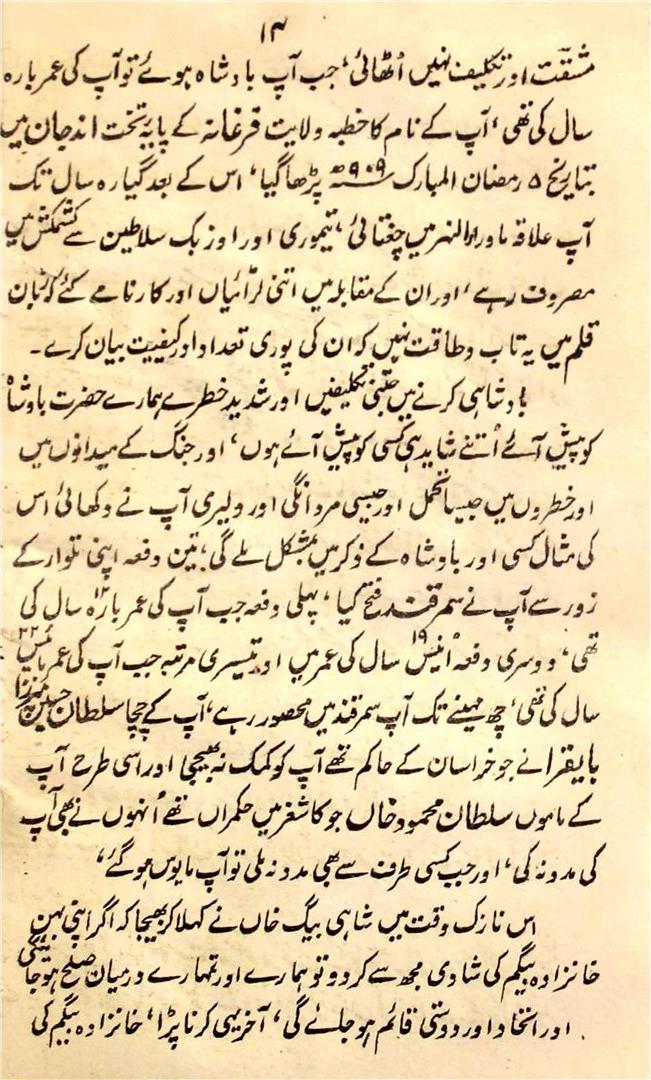 ۱۳
مشقّت اور تکلیف نہیں اُٹھائی، جب آپ بادشاہ ہوئے تو آپ کی عمر بارہ
سال کی تھی، آپ کے نام کا خطبہ ولایت فرغانہ کے پایۂ تخت اندجان میں
بتاریخ ۵ رمضان المبارک ۹۰۹ھ پڑھا گیا، اس کے بعد گیارہ سال تک
آپ علاقہ ماوراء النہر میں چغتائی، تیموری اور اوزبک سلاطین سے کشمکش میں
مصروف رہے، اور ان کے مقابلہ میں اتنی لڑائیاں اور کارنامے کئے کہ زبان
قلم میں یہ تاب و طاقت نہیں کہ ان کی پوری تعداد اور کیفیت بیان کرے۔
بادشاہی کرنے میں جتنی تکلیفیں اور شدید خطرے ہمارے حضرت بادشاہ
کو پیش آئے اُتنے شاید ہی کسی کو پیش آئے ہوں، اور جنگ کے میدانوں میں
اور خطروں میں جیسا تحمل اور جیسی مردانگی اور دلیری آپ نے دکھائی اس
کی مثال کسی اور بادشاہ کے ذکر میں بمشکل ملے گی، تین دفعہ اپنی تلوار کے
زور سے آپ نے سمرقند فتح کیا، پہلی دفعہ جب آپ کی عمر بارہ ۱۲ سال کی
تھی، دوسری دفعہ اُنیس ۱۹ سال کی عمر میں اور تیسری مرتبہ جب آپ کی عمر بائیس ۲۲
سال کی تھی، چھ مہینے تک آپ سمرقند میں محصور رہے، آپ کے چچا سلطان حسین میرزا
بایقرا نے جو خراسان کے حاکم تھے آپ کو کمک نہ بھیجی اور اسی طرح آپ
کے ماموں سلطان محمود خاں جو کاشغر میں حکمراں تھے اُنہوں نے بھی آپ
کی مدد نہ کی، اور جب کسی طرف سے بھی مدد نہ ملی تو آپ مایوس ہو گئے،
اس نازک وقت میں شاہی بیگ خاں نے کہلا کر بھیجا کہ اگر اپنی بہن
خانزادہ بیگم کی شادی مجھ سے کر دو تو ہمارے اور تمہارے درمیان صلح ہو جائیگی
اور اتحاد اور دوستی قائم ہو جائے گی، آخر یہی کرنا پڑا، خانزادہ بیگم کی